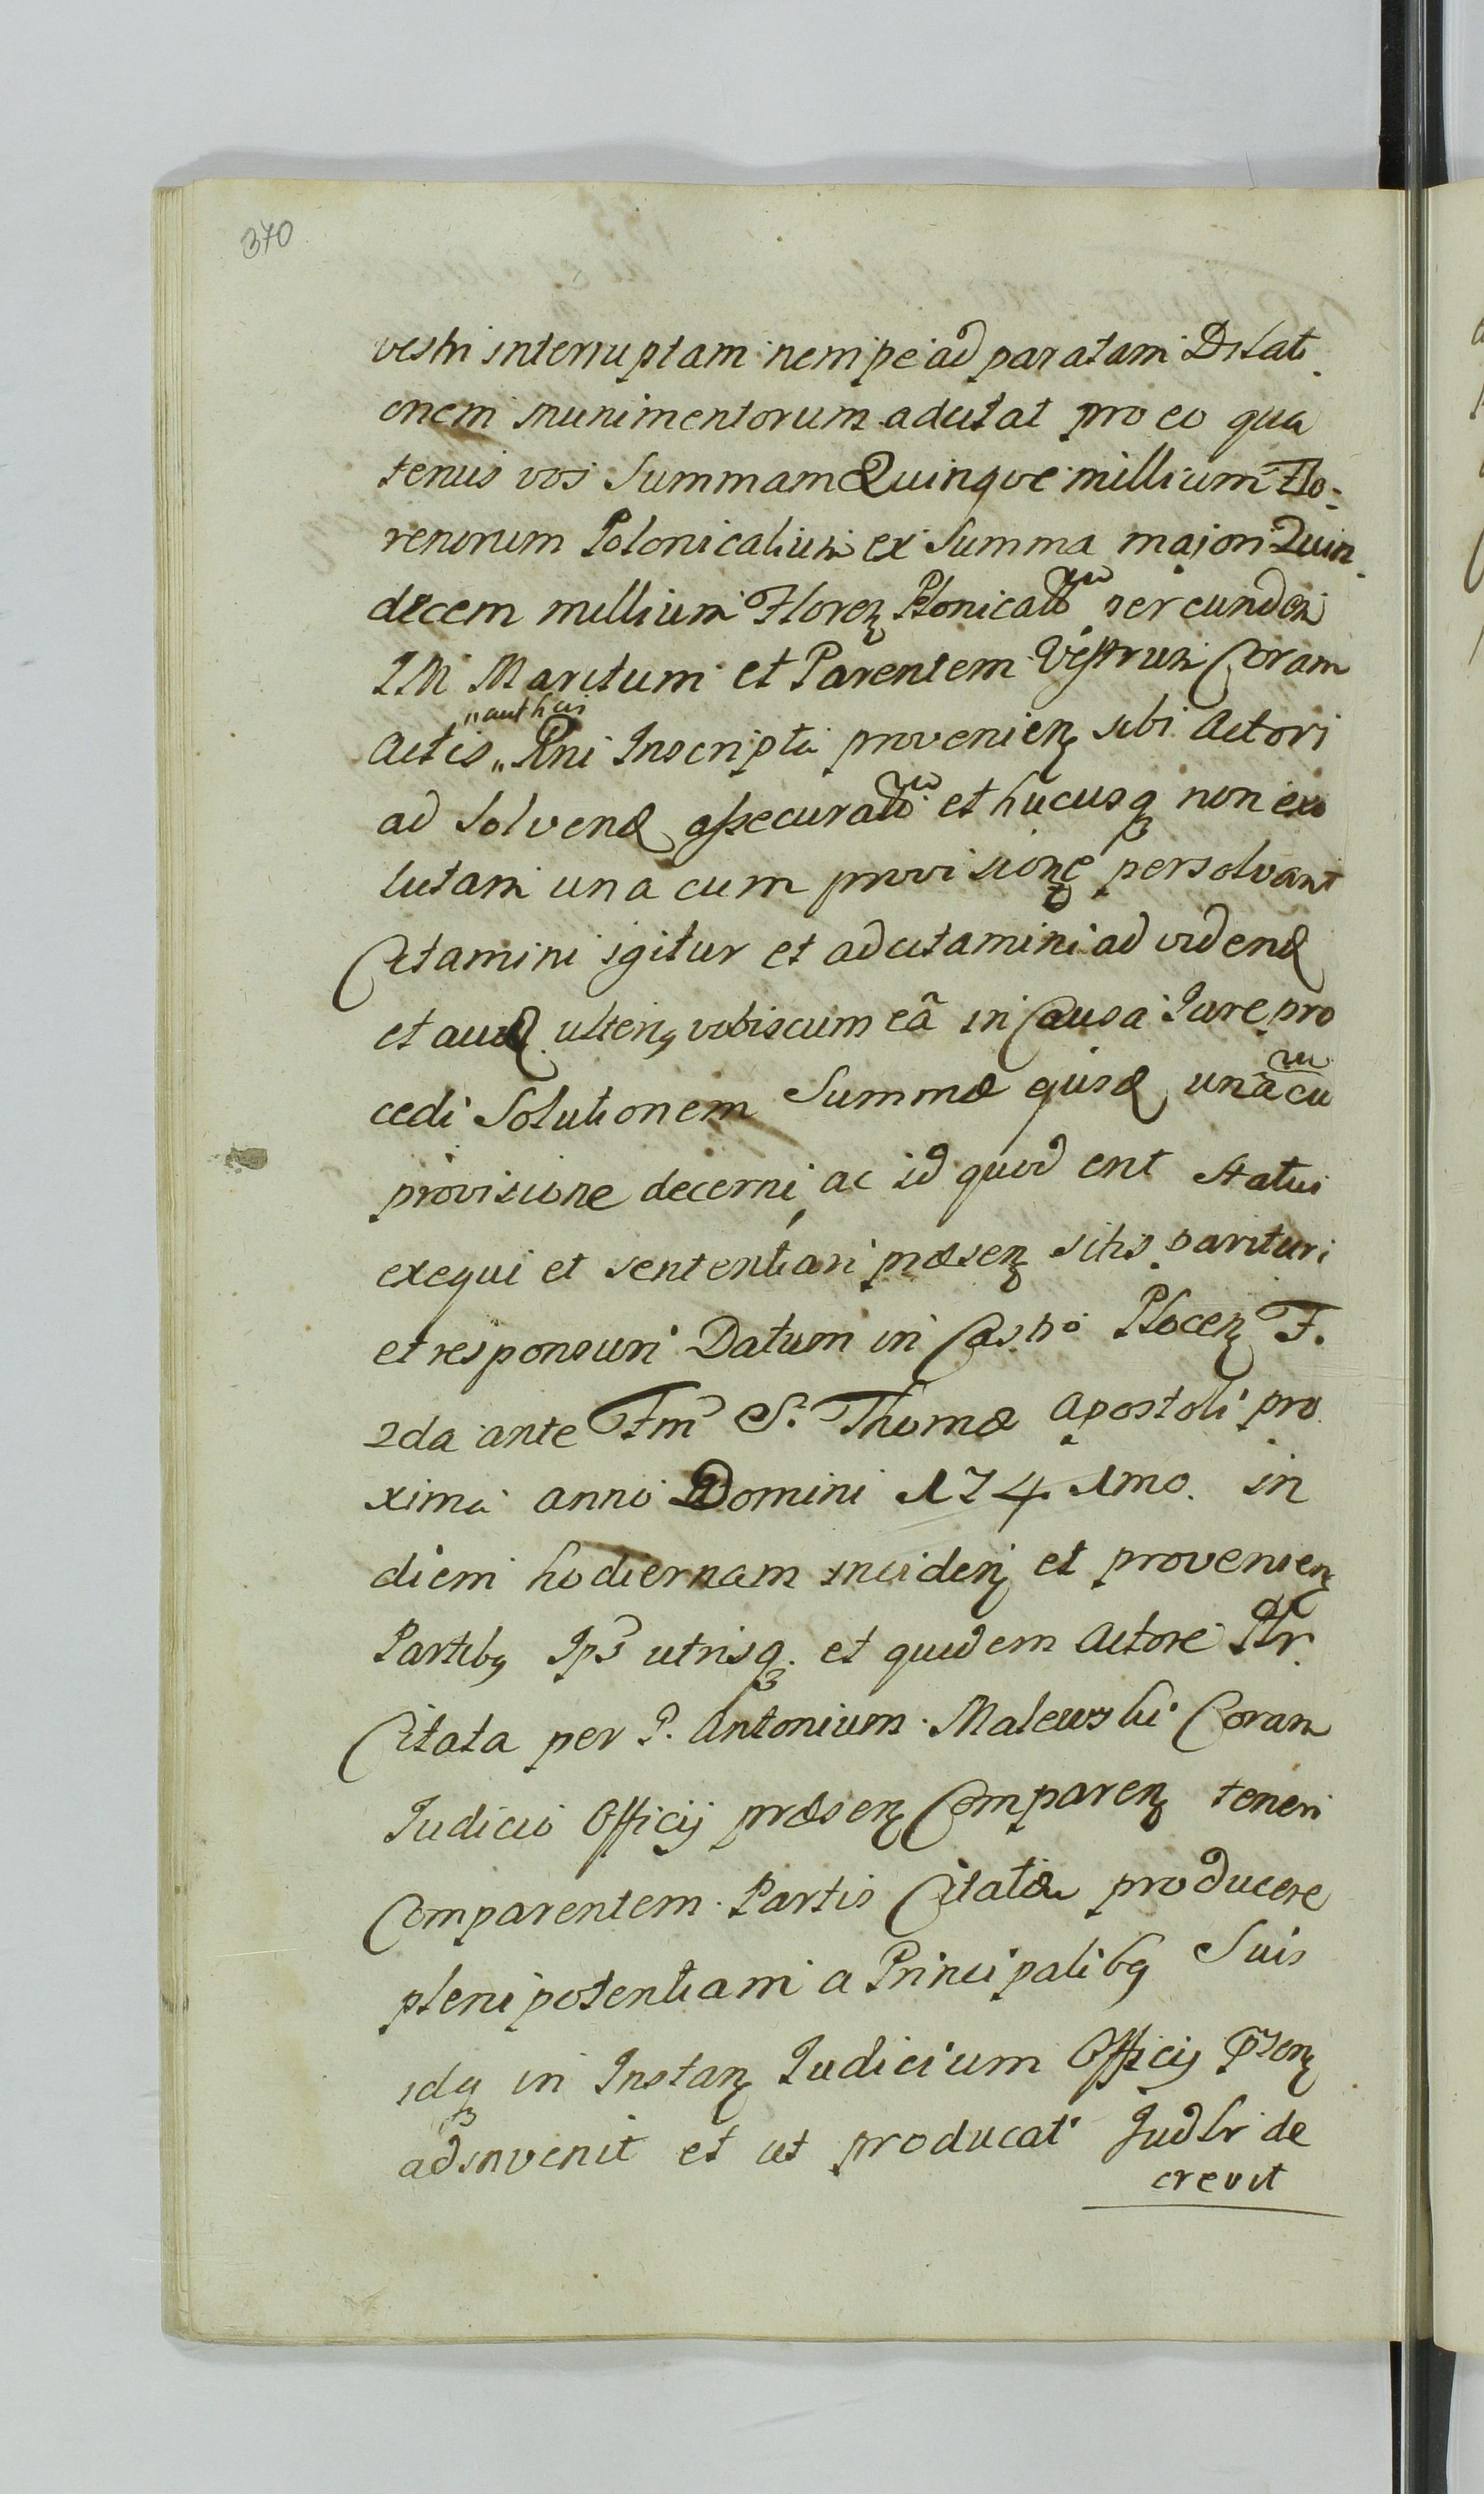 370
vestri interruptam nempe ad paratam Dilati
onem munimentorum adcitat pro eo qua
tenus vos Summam Quinque millium Flo-
renorum Polonicalium ex Summa majori Quin
decem millium Floren Polonical per eundem
IM Maritum et Parentem Vestrum Coram
"authcis
Actis " Pni Inscripti provenien sibi Actori
ad Solvend assecurat et hucusq non exo
lutam una cum provisione persolvant
Citamini igitur et adcitamini ad vidend
et aud ulterig vobiscum eã in Causa Jure pro
cedi Solutionem Summæ ejusd unà cu
provisione decerni, ac id quod erit Statui
exequi et sententiari præsen sitis parituri
et responsuri Datum in Castro Plocen F.
2da ante Fm S. Thomæ Apostoli pro
xima anno Domini 1741mo. in
diem hodiernam inciden et provenien
Partibq Ips utrisq. et quidem Actore Pr.
Citata per P. Antonium Malewski Coram
Judicio Officij præsen Comparen teneri
Comparentem Partis Citatæ producere
plenipotentiam a Principalibq Suis
idq in Instan Judicium Officij Psen
adinvenit et ut producat Judlr de
crevit